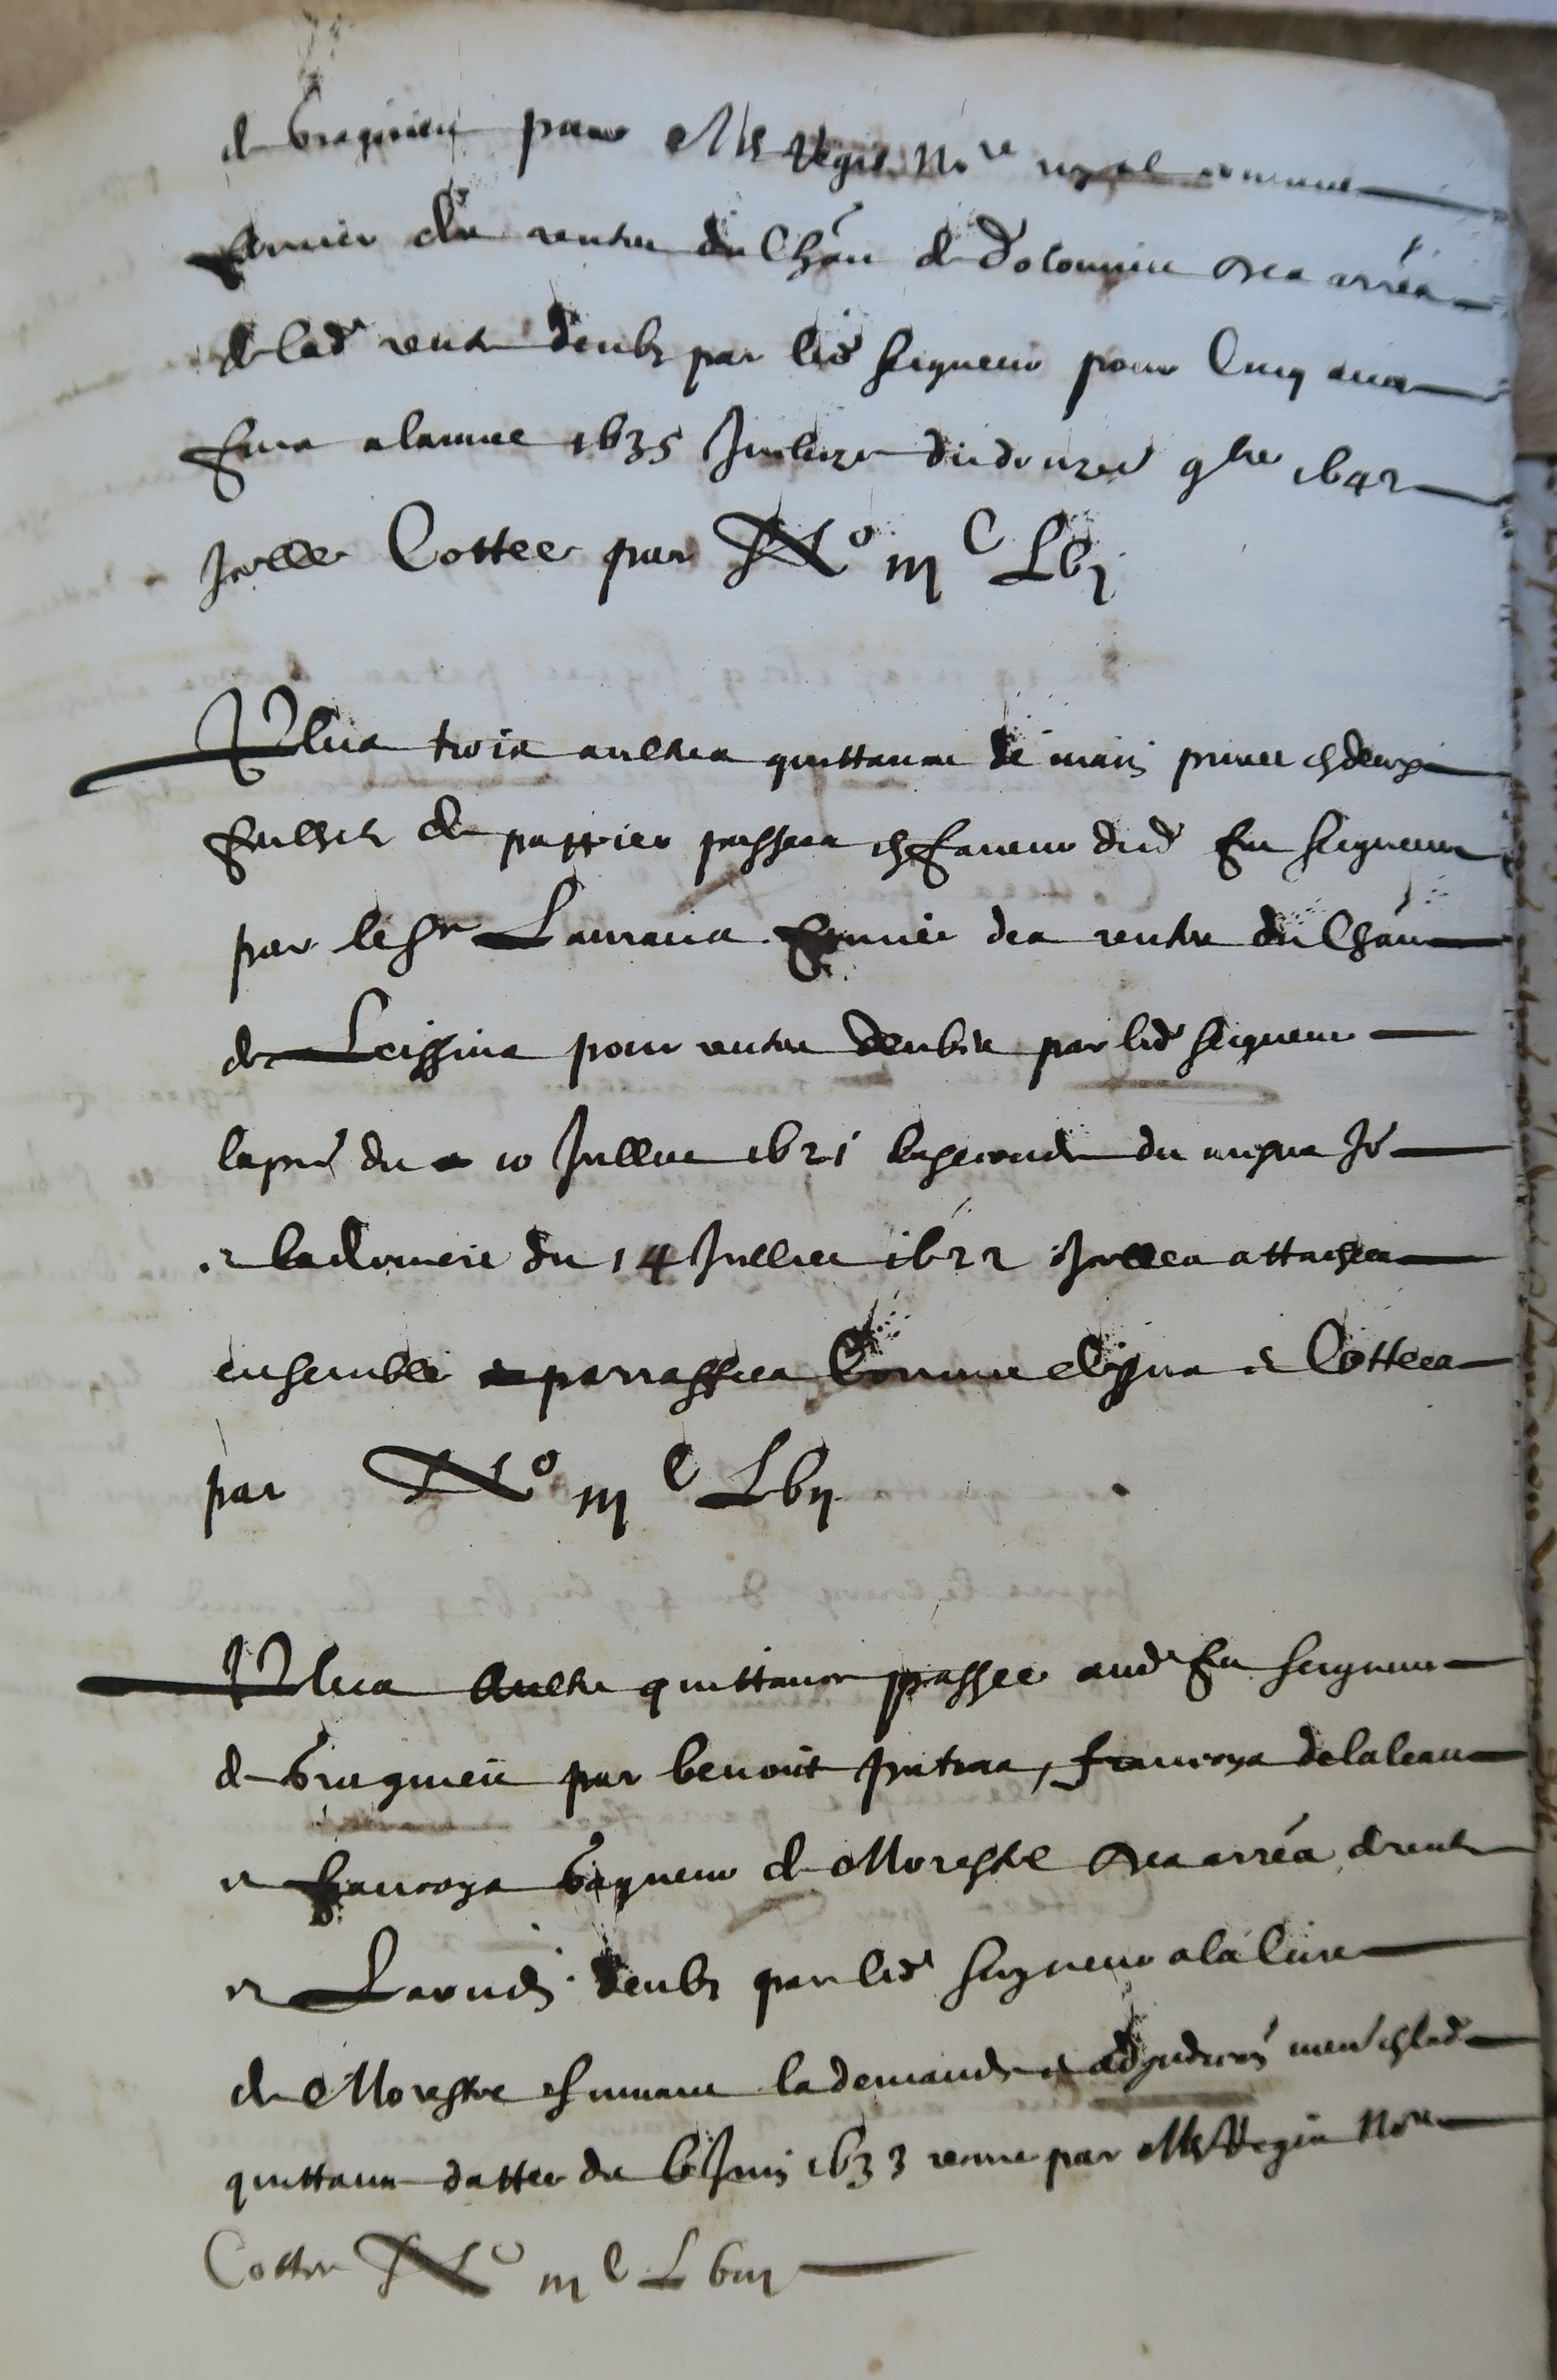 de Braqnieu par Me Regis No.re royal comme
fermier des rentes du Chau de Dolomieu des arréa
de lad rente deubz par led seigneur pour Cinq ans
finis a lannee 1635 Incluze du douze 9bre 1642
Icelle Cottee par No iijC Lvj
Plus trois aultres quittance de main privee en deux
fulhet de pappier passees en faveur dud feu seigneur
par le sr Laurans fermier des rentes du Chau
de Leissins pour rentes deubes par led seigneur
la pre du 10 Jullet 1621 la seconde du mesme Jr
et la derniere du 14 Jullet 1622 Icelles attachees
ensemble parraffees Comme dessus et Cottees
par No iijC Lvij
Plus Aultre quittance passee aud feu seigneur
de Braqnieu par benoit putras, francoys delaleau
et francoys de Moreste des arréa de rente
et Laoudz deubz par led seigneur a la Cure
de Moreste suivant la demande et en lad
quittance dattee du 6 Juin 1633 receue par Me Regis Nore
Cottee No iijC Lviij